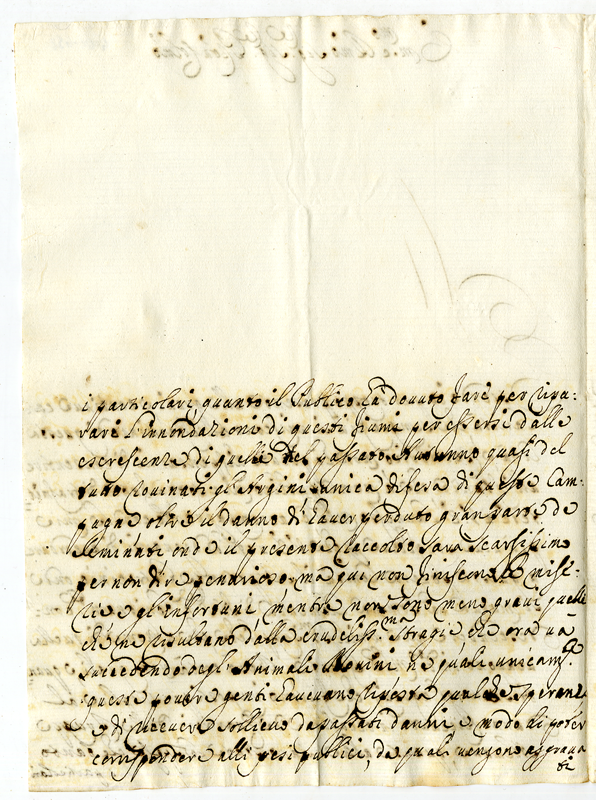 i particolari, quanto il Publico hà dovuto fare per ripa:
rare l'innondazioni di questi fiumi per essersi dalle
escrescenze di quelli del passato Autunno quasi del
tutto rovinati gl'Argini unica difesa di queste Cam:
pagne oltre il danno di haver perduto gran parte de
Seminati onde il presente Raccolto sara scarsissimo
per non dire penurioso, ma qui non finiscono le mise:
rie e gl'infortuni mentre non sono meno gravi quelle
che ne risultano dalla crudeliss.ma strage che ora va
succedendo degl'Animali Bovini ne quali unicam.te
queste povere genti havevano riposta qualche speranza
e di ricevere sollievo da passati danni e modo di poter
corrispondere alli pesi publici, da quali vengono aggrava
ti